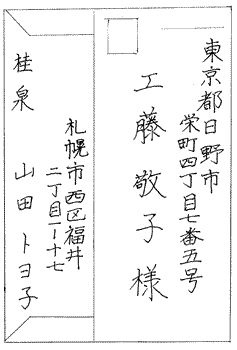 東京都日野市
栄町四丁目七番五号
工藤敬子様
札幌市西区福井
二丁目一ー十七
桂泉
山田トヨ子